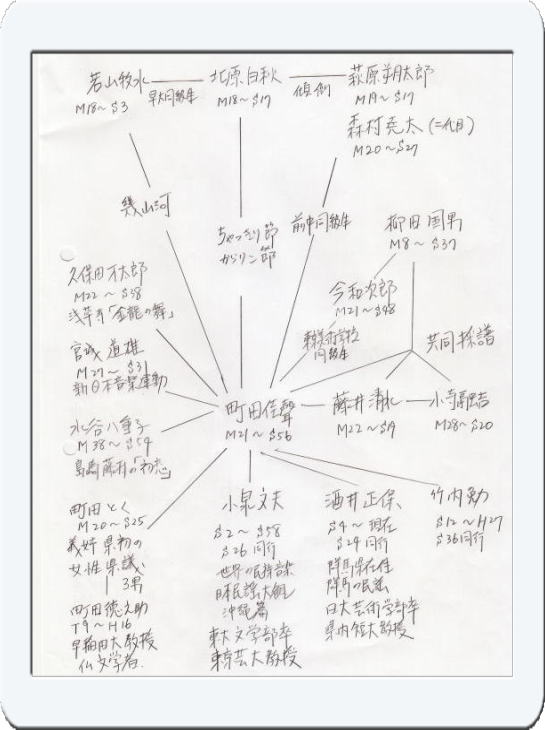 若山牧水
M18～S3
早大同級生
北原白秋
M18～S17
傾倒
萩原朔太郎
M19～S17
森村堯太(二代目)
M20～S27
幾山河
ちゃっきり節
からリン節
前中同級生
柳田国男
M8～S37
久保田万太郎
M22～S38
浅草寺「金龍の舞」
今和次郎
M21～S48
東京美術学校
同級生
共同採譜
宮城道雄
M27～S31
新日本音楽運動
町田佳聲
M21～S56
藤井清水
M22～S19
小寺融吉
M28～S20
水谷八重子
M38～S54
島崎藤村の「初恋」
町田とく
M20～S25
義姉 県初の
女性県議
3男
町田徳之助
T9～H16
早稲田大教授
仏文学者.
小泉文夫
S2～S58
S26同行
世界の民族音楽
日本民謡大観
沖縄篇
東大文学部卒
東京芸大教授
酒井正保
S4～現在
S24同行
群馬県在住
群馬の民謡
日大芸術学部卒
県内短大教授
竹内勉
S12～H27
S36同行